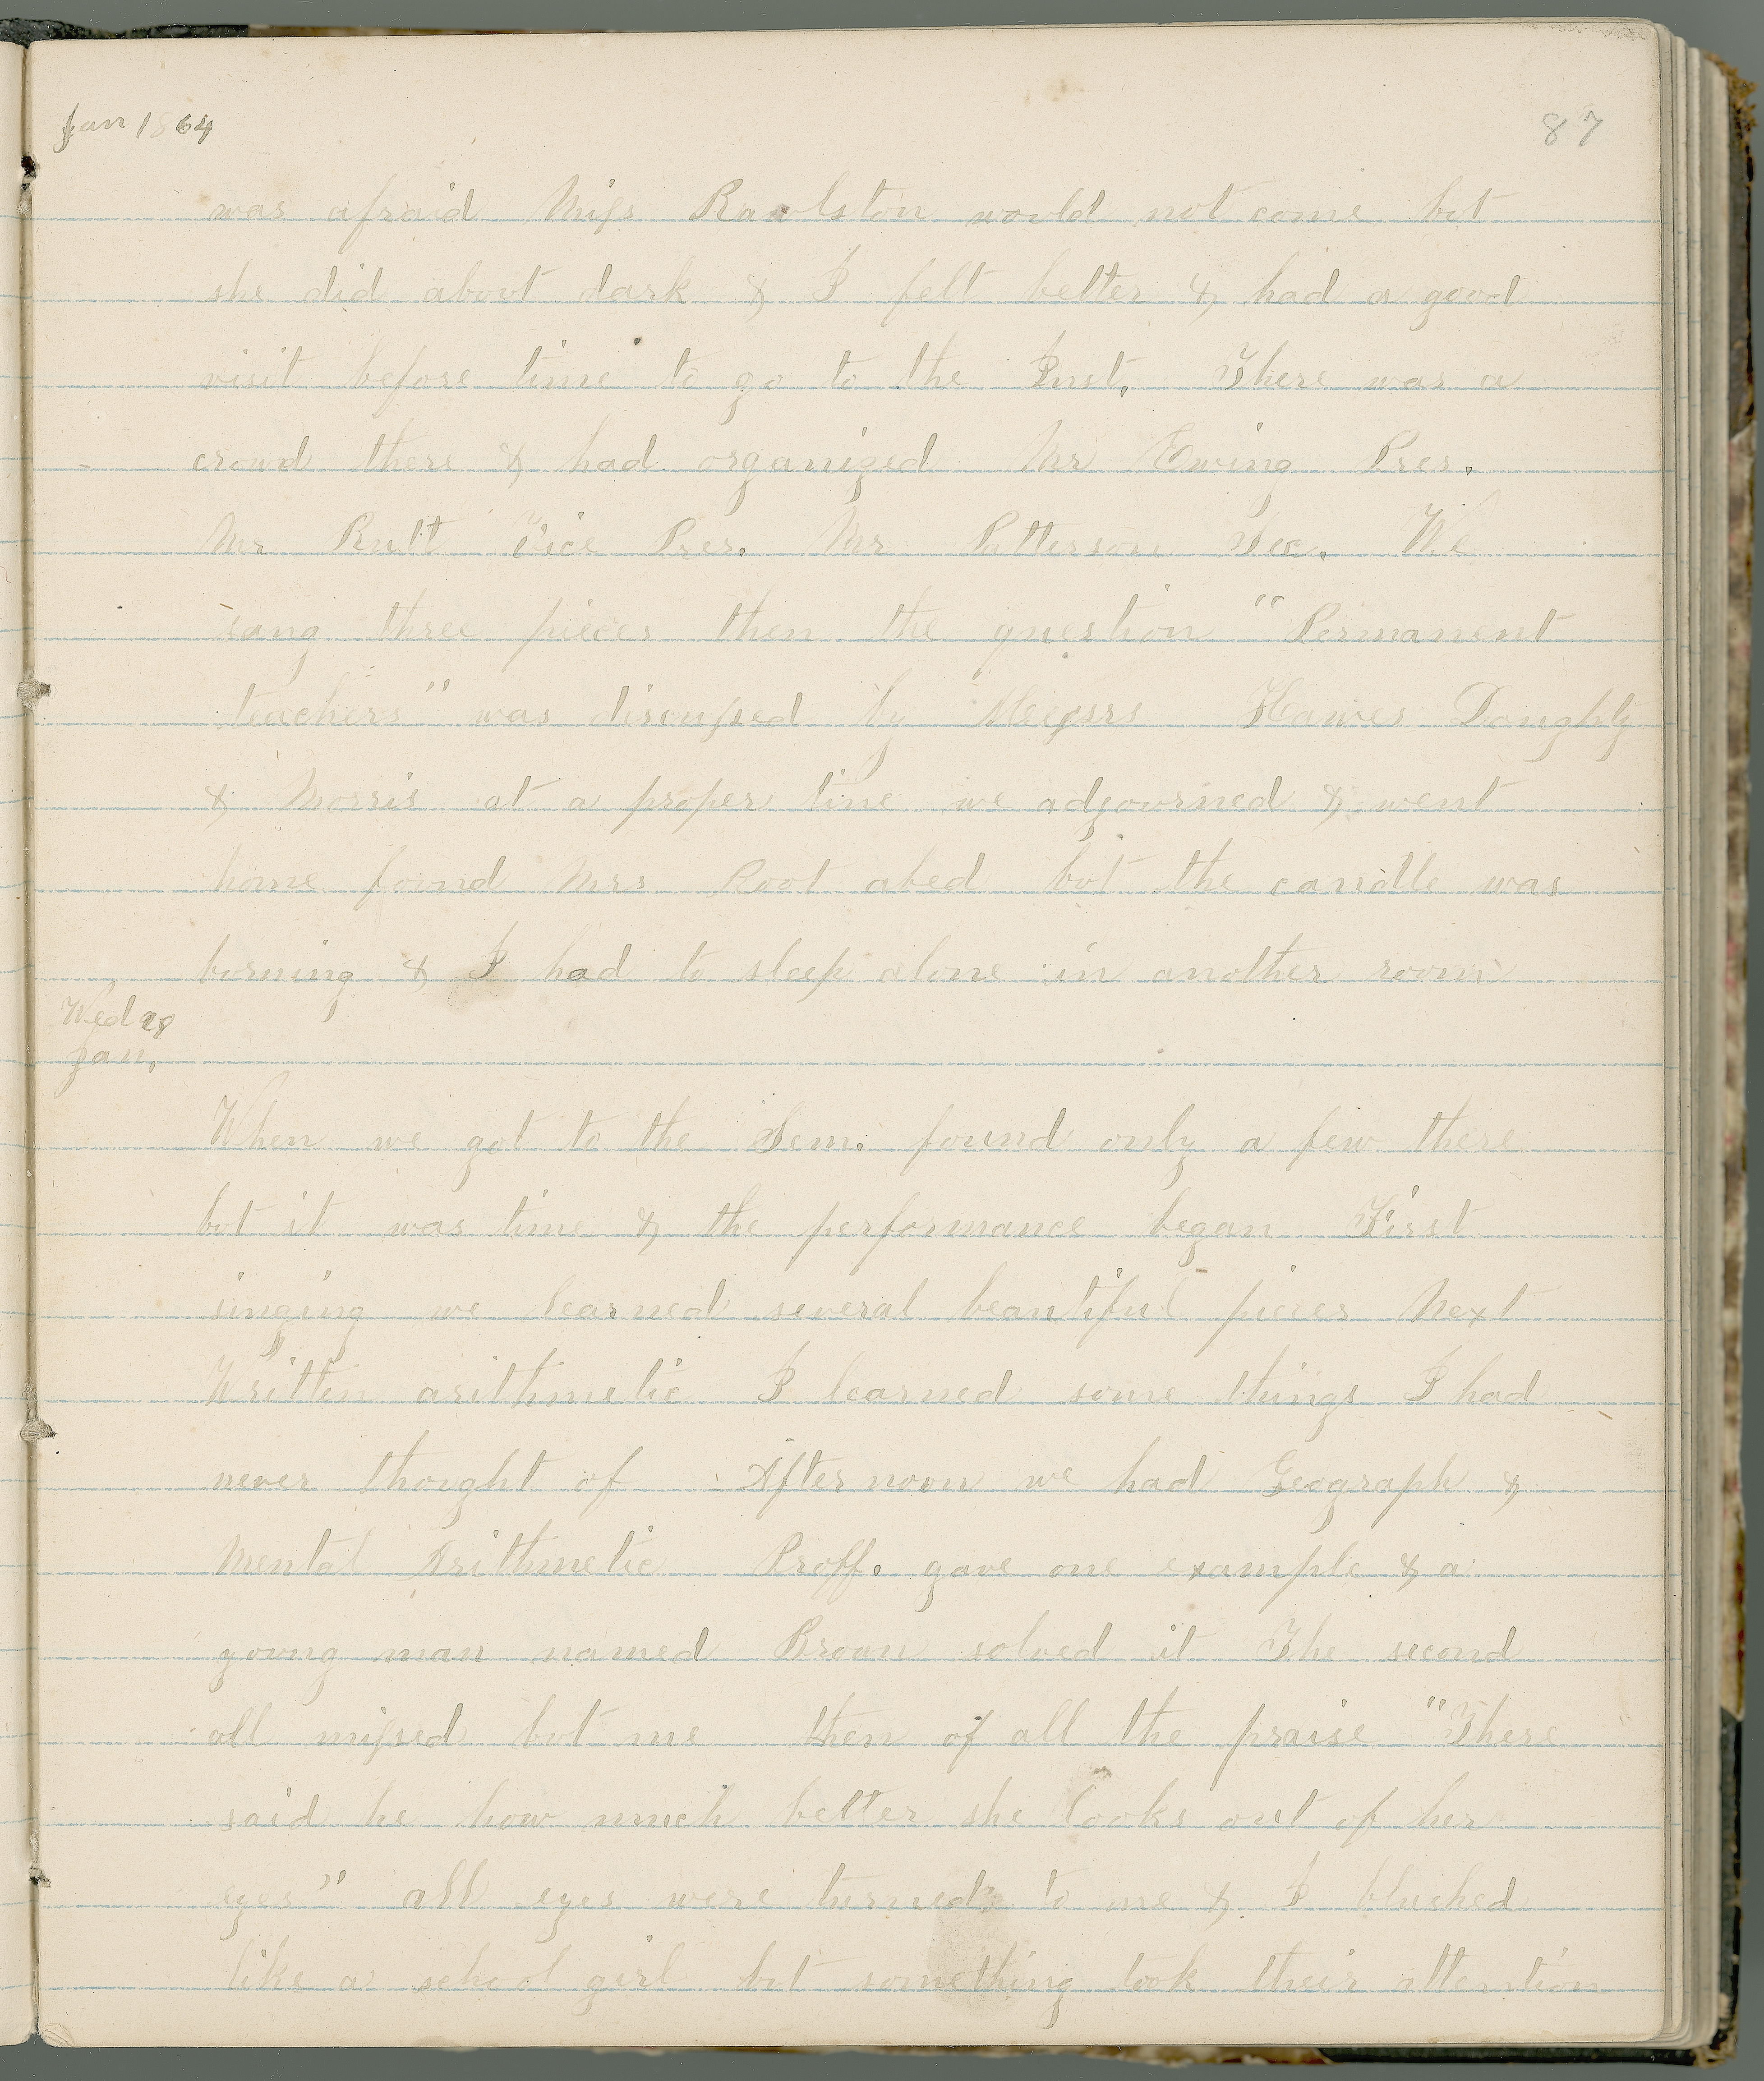 Jan 1864
87
was afraid Miss Rawlston would not come but
she did about dark & I felt better & had a good
visit before time to go to the Inst. There was a
crowd there & had organized Mr Ewing Pres.
Mr Rutt Vice Pres. Mr Patterson Sec. We
sang three pieces then the question "Permanent
teachers" was discussed by Messrs Hawes Doughty
& Morris at a proper time we adjourned & went
home found Mrs Root abed but the candle was
burning & I had to sleep alone in another room
Wed
Jan,
When we got to the Sem. found only a few there
but it was time & the performance began First
singing we learned several beautiful pieces Next
Written arithmetic I learned some things I had
never thought of Afternoon we had Geograph &
Mental Arithmetic Proff. gave one example & a
young man named Brown solved it The second
all missed but me then of all the praise "There
said he how much better she looks out of her
eyes" all eyes were turned to me & I blushed
like a school girl but something took their attention